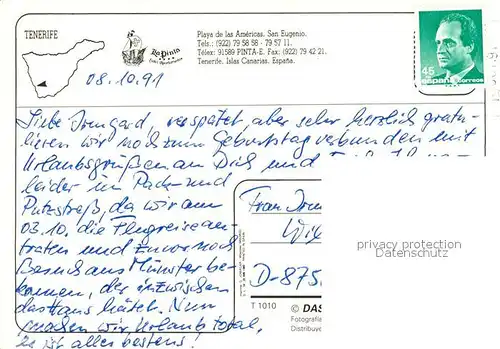 TENERIFE
La Pinta
Playa de las Américas. San Eugenio.
Tels.: (922) 79 58 58 - 79 57 11.
Télex: 91589 PINTA-E. Fax: (922) 79 42 21.
Tenerife. Islas Canarias. España.
45
españa
correos
08.10.91
Liebe Irmgard, verspätet, aber sehr herzlich gratu-
lieren wir noch zum Geburtstag verbunden mit
Urlaubsgrüßen an Dich und
leider im Pack- und
Putzstreß, da wir am
03.10. die Flugreise an-
traten und zuvor noch
Besuch aus Münster be-
kamen, der inzwischen
das Haus hütet. Nun
machen wir Urlaub total,
es ist alles bestens!
Frau Irm
D-875
privacy protection
Datenschutz
T 1010
© DAS
Fotografía
Distribuye